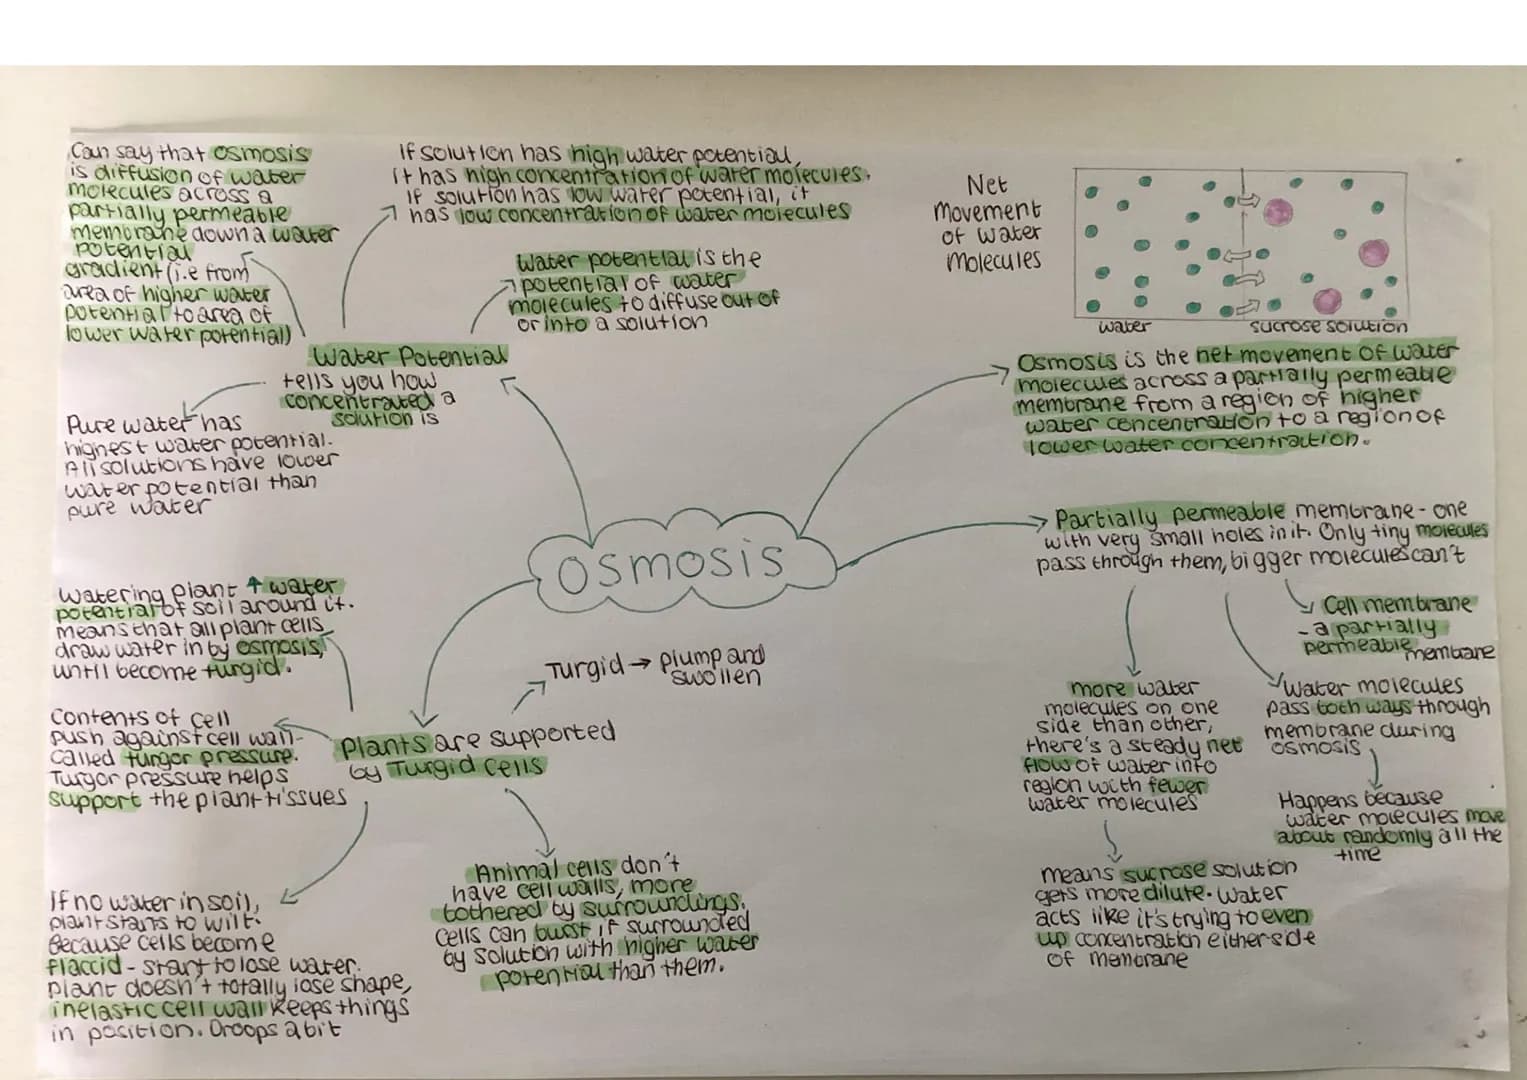 Can say that osmosis
is diffusion of water
molecules across a
partially permeable
membrane down a water
potential
gradient (i.e from
area of higher water
potential to area of
lower water potential)
If solution has high water potential,
it has high concentration of water molecules.
If solution has low water potential, it
has low concentration of water molecules
Water potential is the
potential of water
molecules to diffuse out of
or into a solution
Water Potential
tells you how
concentrated a
solution is
Pure water has
highest water potential.
All solutions have lower
water potential than
pure water
Net
Movement
of water
Molecules
water
sucrose solution
Osmosis is the net movement of water
molecules across a partially permeable
membrane from a region of higher
water concentration to a region of
lower water concentration.
Osmosis
Partially permeable membrane - one
with very small holes in it. Only tiny molecules
pass through them, bigger molecules can't
Cell membrane
- a partially
permeable membrane
Water molecules
pass both ways through
membrane during
osmosis
Happens because
water molecules move
about randomly all the
time
more water
molecules on one
side than other,
there's a steady net
flow of water into
region with fewer
water molecules
means sucrose solution
gets more dilute. Water
acts like it's trying to even
up concentration either side
of membrane
Watering plant ↑ water
potential of soil around it.
means that all plant cells
draw water in by osmosis,
until become turgid.
Turgid → plump and
swollen
Plants are supported
by Turgid Cells
Contents of cell
push against cell wall-
called turgor pressure.
Turgor pressure helps
support the plant tissues
If no water in soil,
plant starts to wilt.
Because cells become
flaccid - start to lose water.
Plant doesn't totally lose shape,
inelastic cell wall keeps things
in position. Droops a bit
Animal cells don't
have cell walls, more
bothered by surroundings.
Cells can burst if surrounded
by solution with higher water
potential than them.